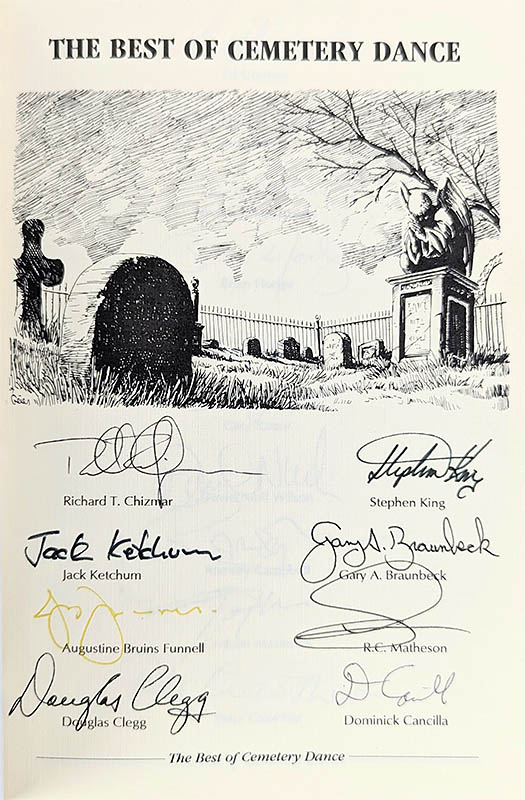 THE BEST OF CEMETERY DANCE
Richard T. Chizmar
Stephen King
Stephen King
Jack Ketchum
Gary A. Braunbeck
Jack Ketchum
Gary A. Braunbeck
Augustine Bruins Funnell
R.C. Matheson
Douglas Clegg
Douglas Clegg
Dominick Cancilla
The Best of Cemetery Dance